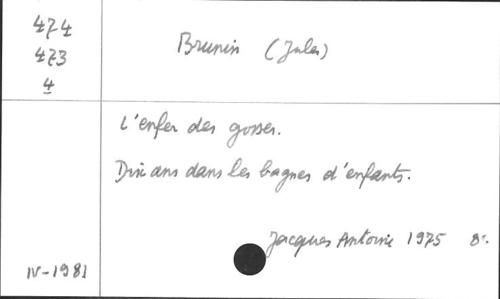 474
473
4
Brunin (Jules)
L'enfer des gosses.
Dix ans dans les bagnes d'enfants.
Jacques Antoine 1975 8°.
IV-1981